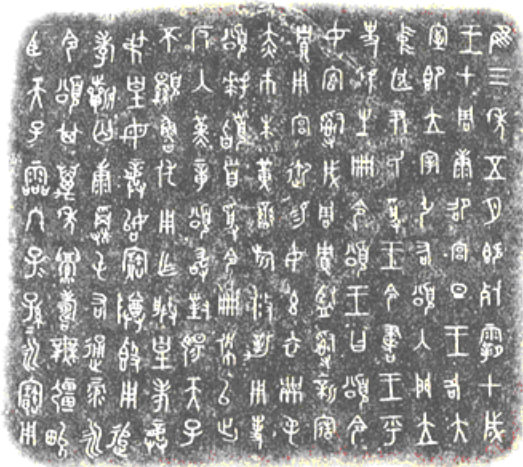 隹三年五月既死霸甲戌
王才周康卲宮旦王各大
室即立宰引右頌入門立
中廷尹氏受王令書王乎
史虢生冊令頌王曰頌令
女官𤔲成周貯監𤔲新造
貯用宮御易女玄衣黹屯
赤巿朱黃䜌旂攸勒用事
頌拜𩒨首受令冊佩以出
反入堇章頌敢對揚天子
不顯魯休用乍朕皇考龏
弔皇母龏始寶尊𣪘用追
孝祈匄康𩁹屯右通彔永
令頌其萬年眉壽無疆畯
臣天子霝冬子子孫孫永寶用